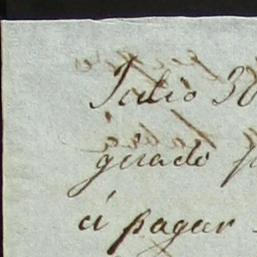 Julio 30
girado p
á pagar